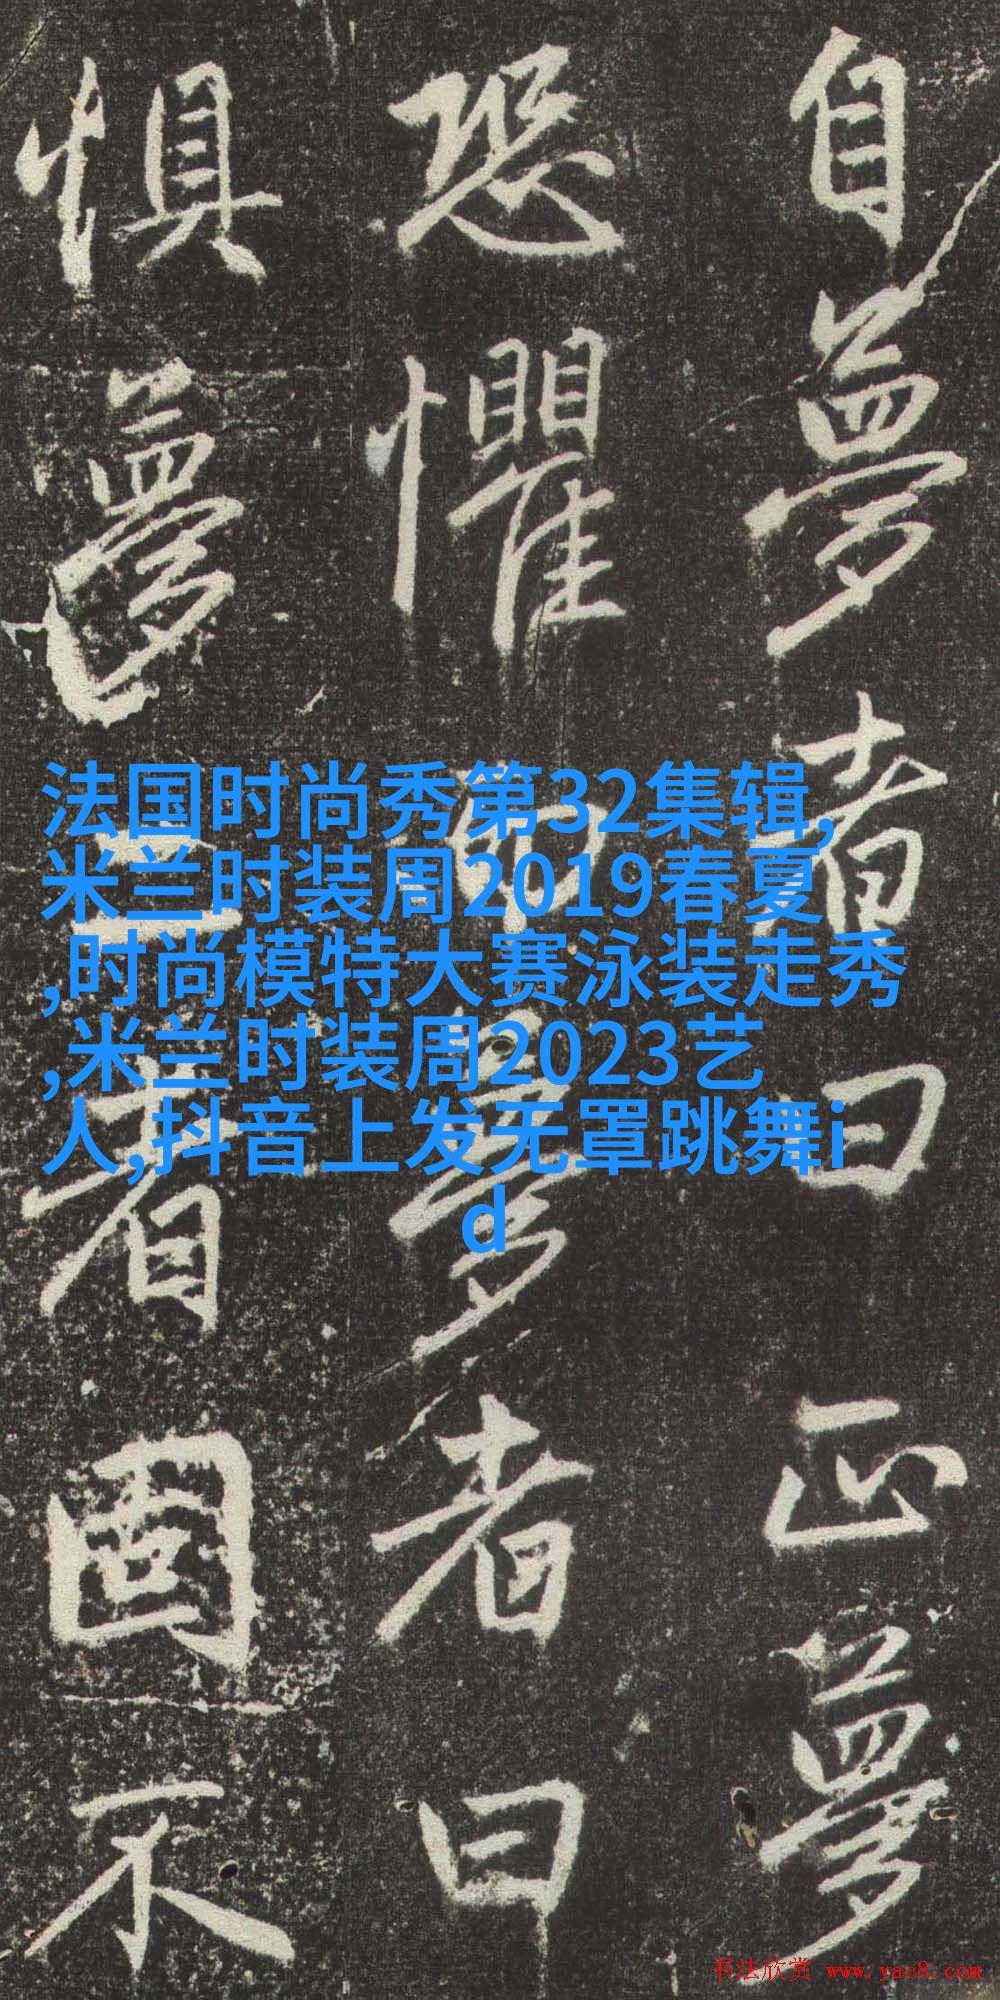 自夢者曰正夢
恐懼而夢者曰
惧夢者固不
法国时尚秀第32集辑,
米兰时装周2019春夏
,时尚模特大赛泳装走秀
,米兰时装周2023艺
人,抖音上发无罩跳舞i
d
书法欣赏 www.yac8.com